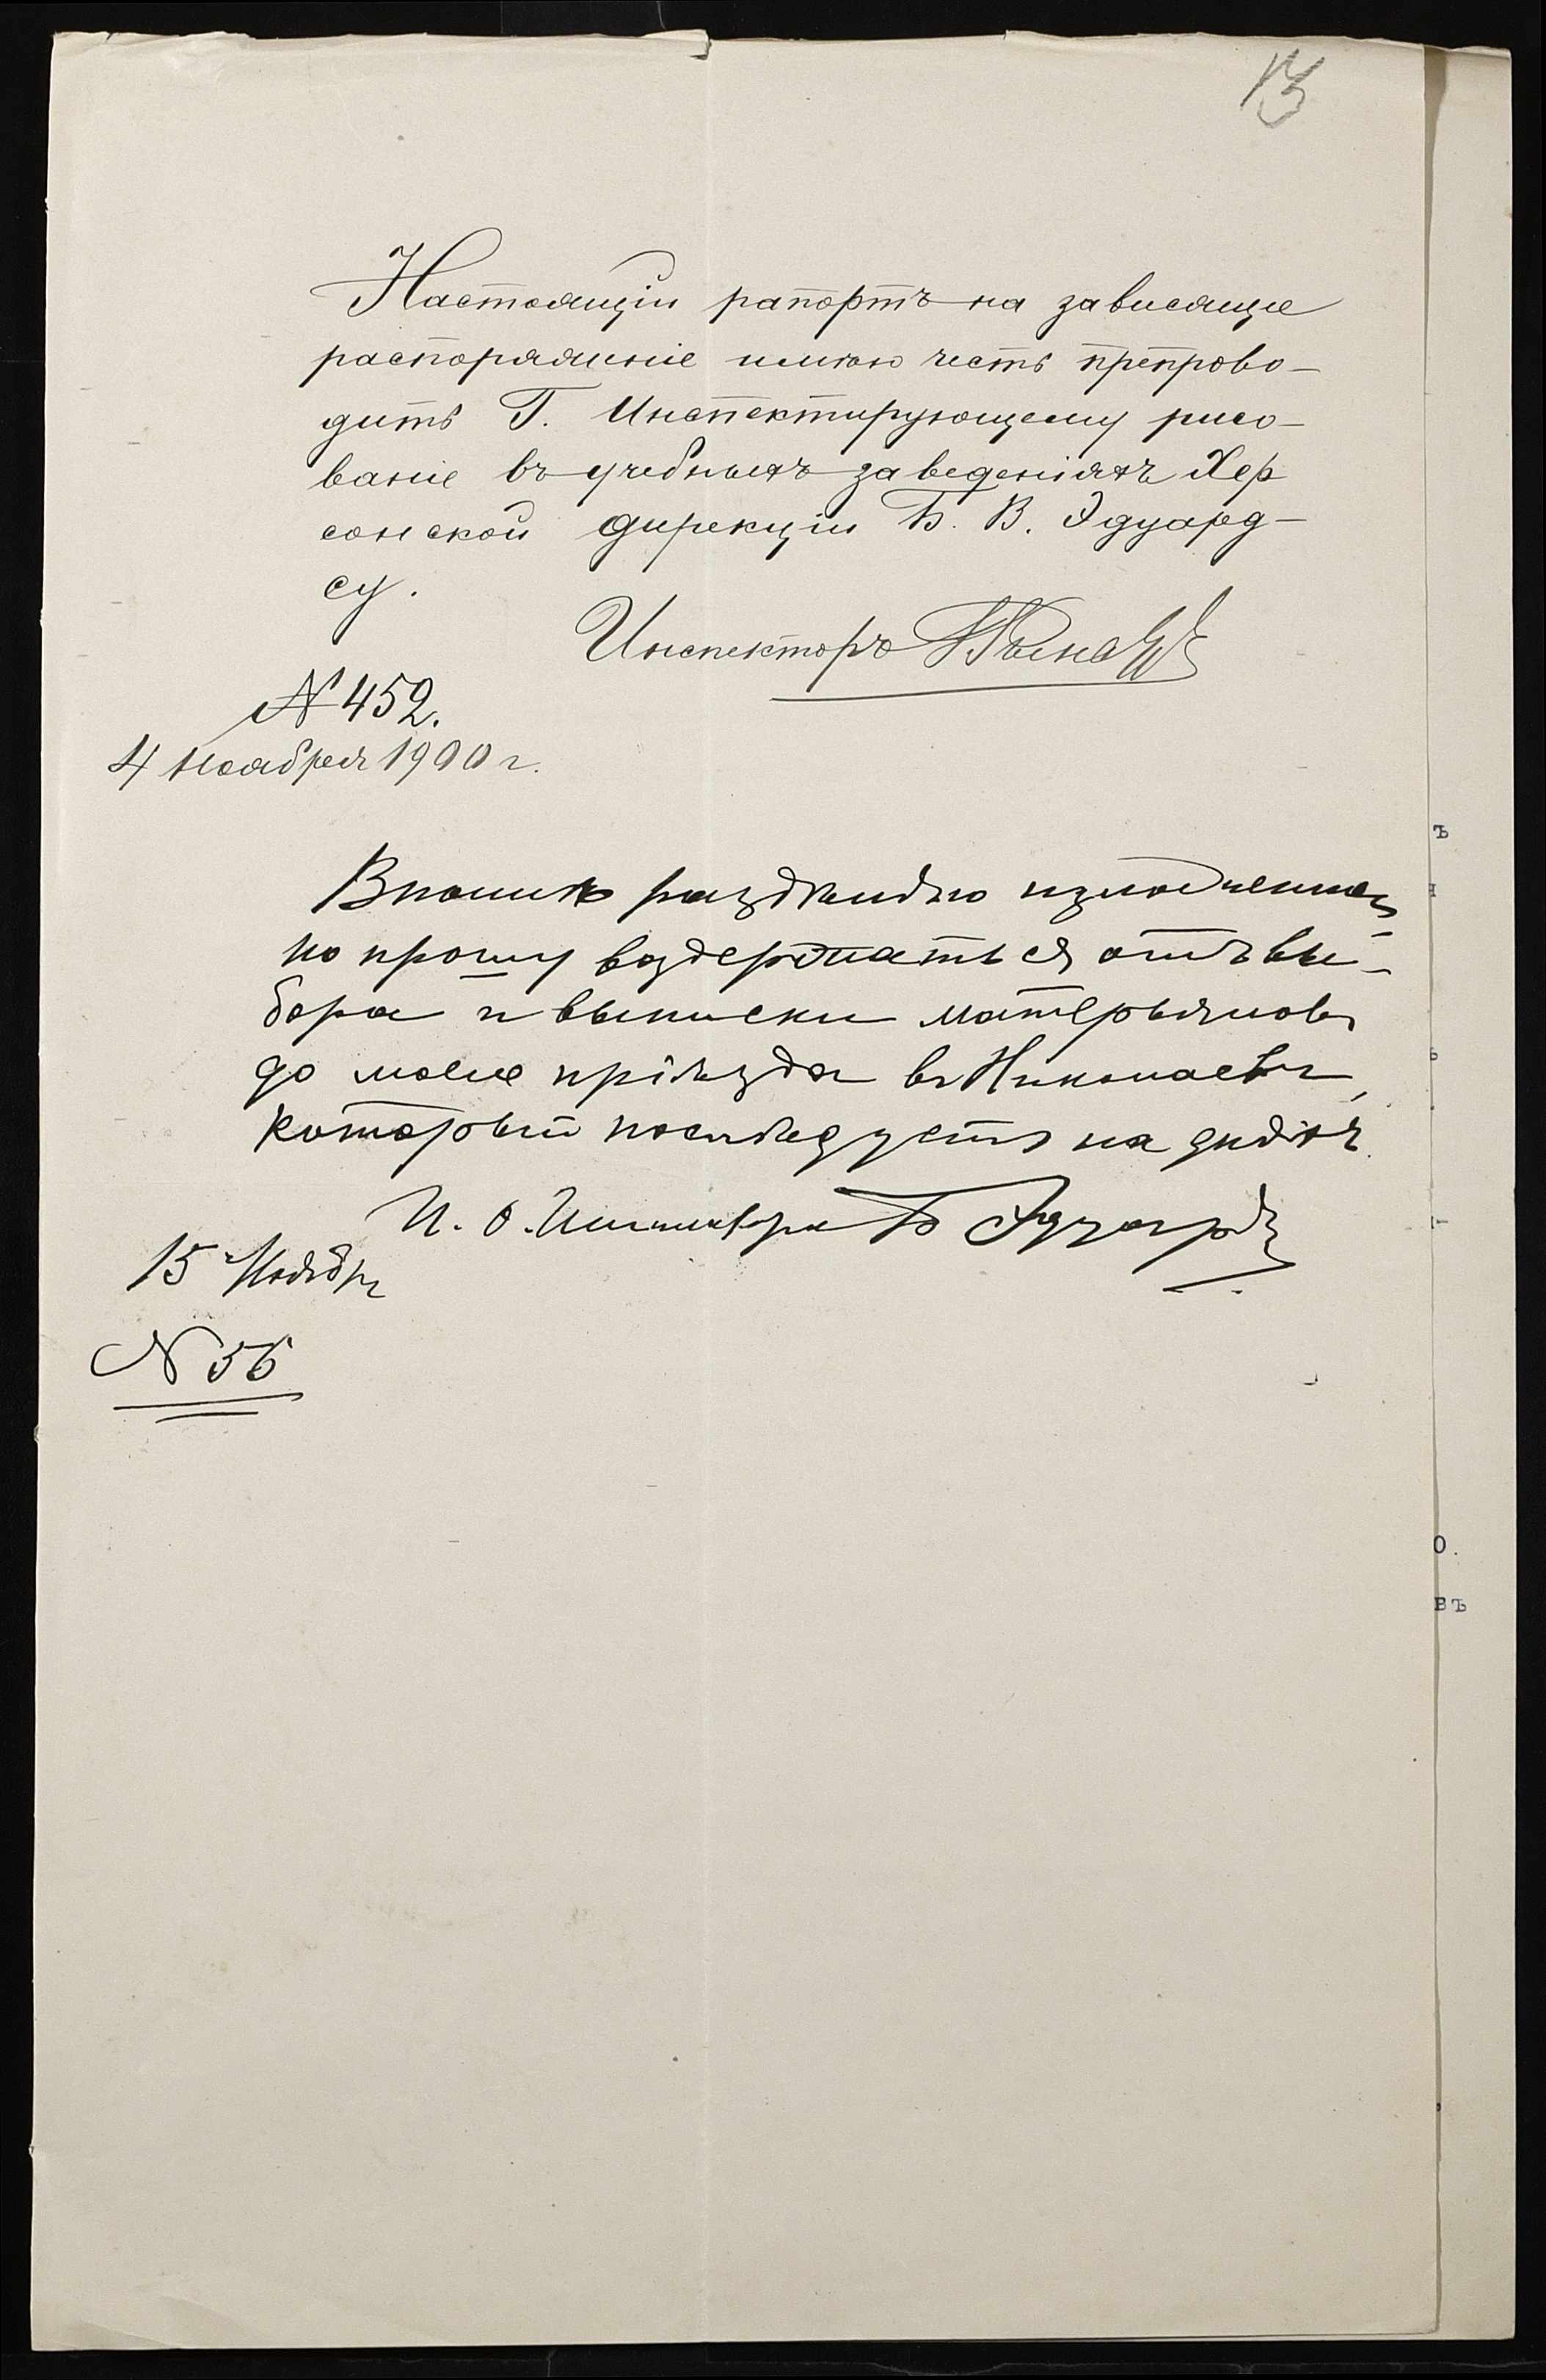 13
Настоящій рапортъ на зависящее
распоряженіе имѣю честь препрово-
дить Г. Инспектирующему рисо-
ваніе въ учебныхъ заведеніяхъ Хер
сонской дирекціи Б. В. Эдуард-
су.
Инспекторъ
№ 452.
4 Ноября 1900 г.
Вполнѣ раздѣляю изложенное
но прошу воздержаться отъ вы-
бора и выписки матерьяловъ
до моего пріѣзда въ Николаевъ,
который послѣдуетъ на дняхъ.
И. О. Инспектора Б Эдуардсъ
15 Ноября
№ 56
ъ
н
ь
0.
въ